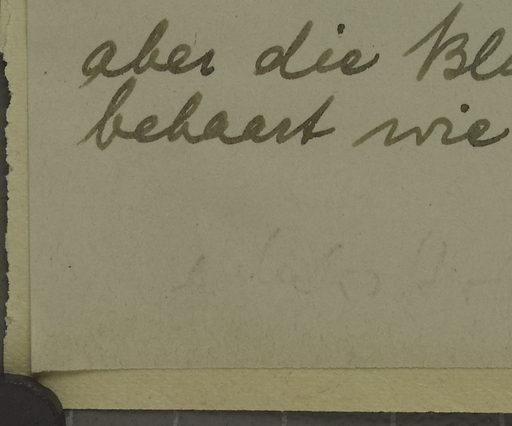 aber die Bl
behaart wie